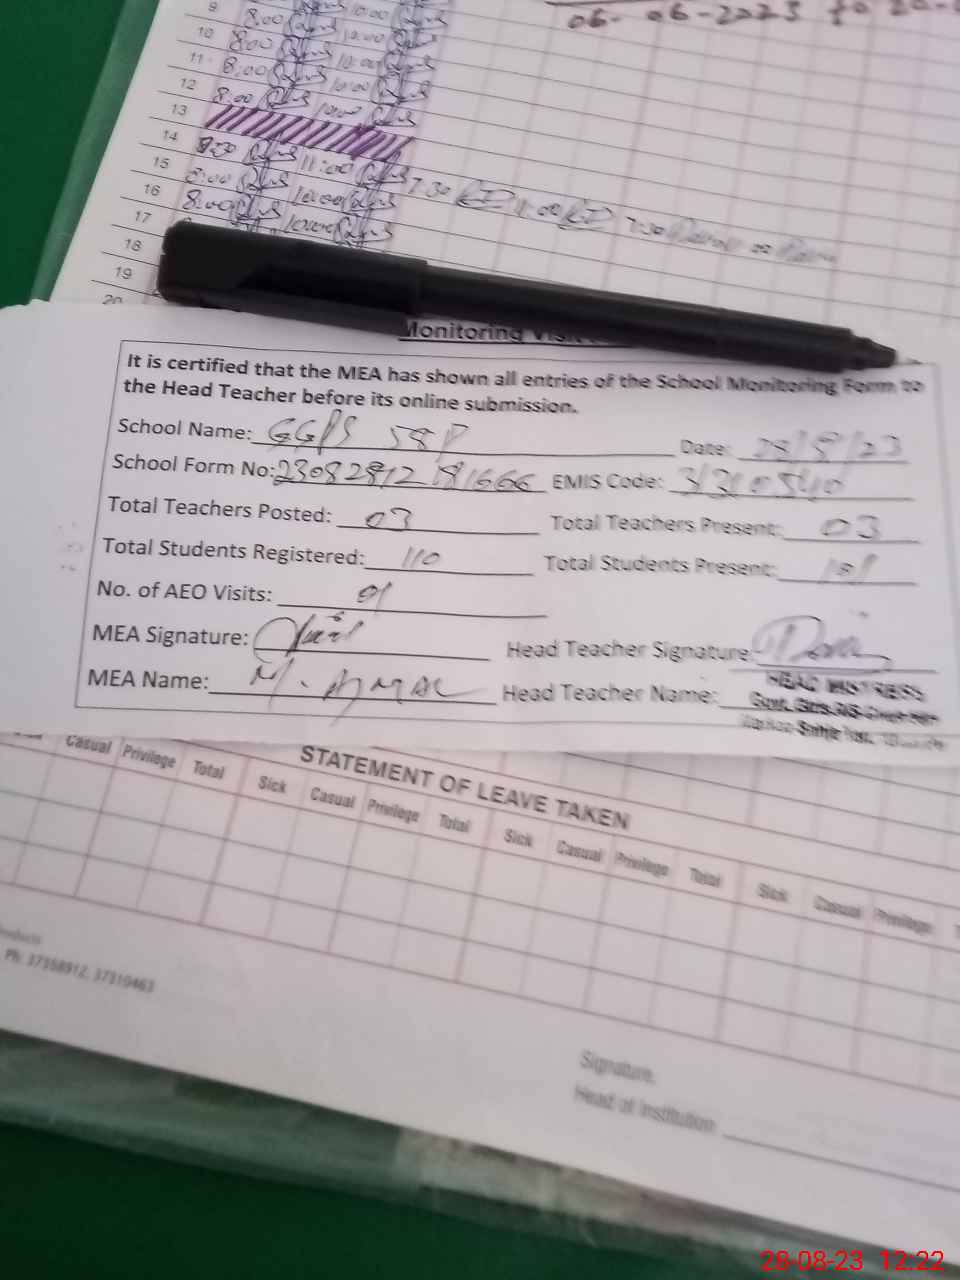 06-06-2023 to
9 8.00 10:00
10 8:00 10:00
11 8:00 10:00
12 8:00 10:00
13
14 11:00 7:30 11:00 7:30
15 8:00 10:00
16 8:00 10:00
17
18
19
20
Monitoring
It is certified that the MEA has shown all entries of the School Monitoring Form to
the Head Teacher before its online submission.
School Name: GGPS 58P Date: 28/8/23
School Form No: EMIS Code: 31310540
Total Teachers Posted: 03 Total Teachers Present: 03
Total Students Registered: 110 Total Students Present: 101
No. of AEO Visits: 01
MEA Signature: Head Teacher Signature:
MEA Name: M. Head Teacher Name:
HEAD MISTRESS
Casual Privilege Total Sick Casual Privilege Total Sick Casual Privilege Total Sick Casual Privilege
STATEMENT OF LEAVE TAKEN
Ph: 37358912, 37310463
Signature,
Head of Institution
28-08-23 12:22